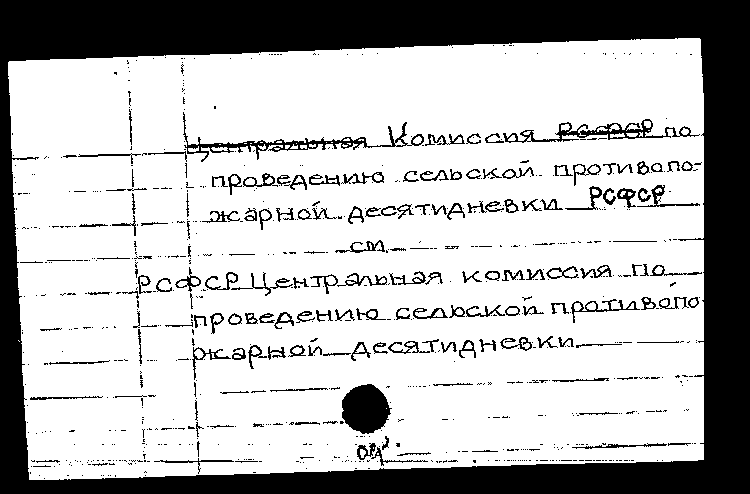 Центральная Комиссия РСФСР по
проведению сельской противопо-
жарной десятидневки РСФСР
см.
РСФСР Центральная комиссия по
проведению сельской противопо-
жарной десятидневки.